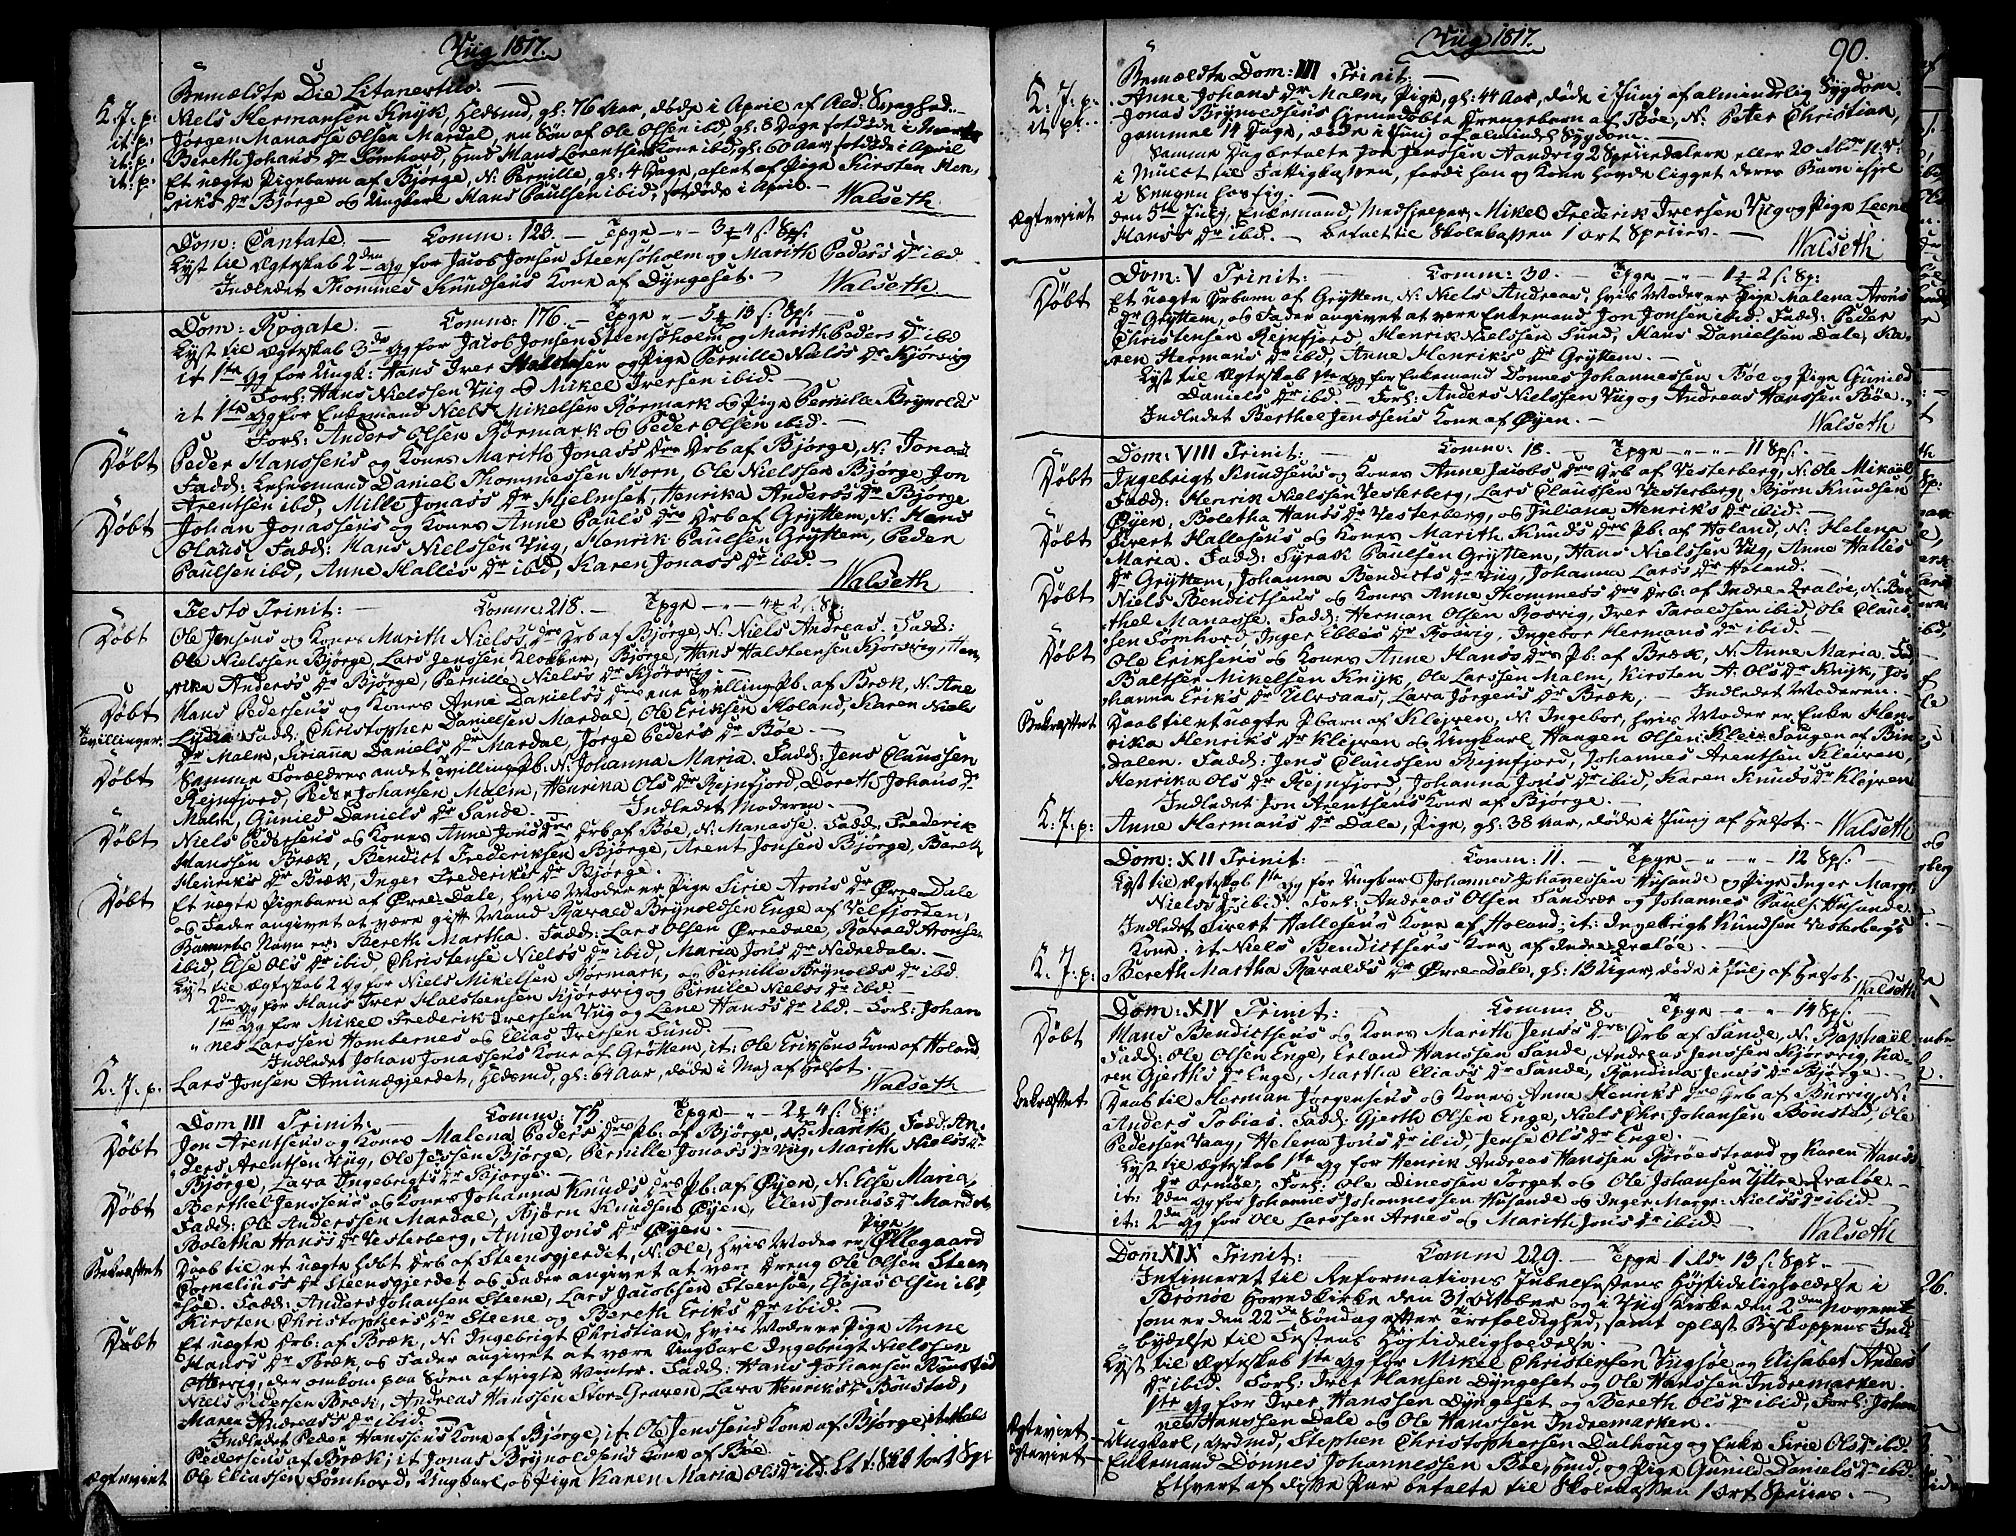 Viig 1817.
Bemældte Die Litanertiis.
K. J. p. Niels Hermansen Knyk, Huusmd, gl: 76 Aar, døde i April af
it: p: Jørgen Manasse Olsen Mardal, en Søn af Ole Olsen ibd, gl: 8 Dage
it: p: Bereth Johans Dr Sømhovd, Hans Lorentsens Kone ibd, gl: 60 Aar, døde i April
it: p: Et uægte Pigebarn af Bjørge, N: Pernille, gl: 4 Dage, afert af Pige Kirsten Hen-
riks Dr Bjørge og Ungkarl Hans Paulsen ibid, døde i April. Walseth
Dom: Cantate. Comm: 123. Tpge 3 4 s: Sp:
Lyst til Ægteskab 2den Gg for Jacob Jonsen Steensøholm og Marith Peders Dr ibd
Indledet Thommes Knudsens Kone af Dyngeset. Walseth
Dom: Rogate. Comm: 176 Tpge 5 13 s. Sp:
Lyst til Ægteskab 3de Gg for Jacob Jonsen Steensøholm og Marith Peders Dr ibd
it 1ste Gg for Ungk: Hans Iver Halstensen og Pige Pernille Niels's Dr Kjørsvig
Forl: Hans Nielssen Viig og Mikel Iversen ibid.
it 1ste Gg for Enkemand Niels Mikelsen Rørmark og Pige Pernille Brynolds
Forl: Anders Olsen Rørmark og Peder Olsen ibid.
Døbt Peder Hanssens og Kones Marith Jonass Drs Drb af Bjørge, N: Jonas
Fadd: Lehnsmand Daniel Thommessen Horn, Ole Nielssen Bjørge, Jon
Arentsen ibid, Mille Jonass Dr Hjelmset, Henrika Anderss Dr Bjørge
Døbt Johan Jonassens og Kones Anne Pauls Drs Drb af Gryttem, N: Hans
Olaus, Fadd: Hans Nielssen Viig, Henrik Paulsen Gryttem, Peder
Paulsen ibd, Anne Halles Dr ibd, Karen Jonass Dr ibd. Walseth
Festo Trinit: Comm: 218. Tpge 4 2 s. Sp:
Døbt Ole Jensens og Kones Marith Niels's Drs Drb af Bjørge, N: Niels Andreas. Fadd:
Ole Nielssen Bjørge, Lars Jenssen Klokker, Bjørge, Hans Halstensen Kjørsvig, Hen-
rika Anderss Dr Bjørge, Pernille Niels's Dr Kjørsvig.
Døbt Hans Pedersens og Kones Anne Daniels Drs ene Tvilling Pb: af Bræk, N: Ane
Tvillinger. Lydia. Fadd: Christopher Danielsen Mardal, Ole Eriksen Holand, Karen Niels
Dr Malm, Siriana Daniels Dr Mardal, Jørge Peders Dr Bøe.
Døbt Samme Forældres andet Tvilling Pb: N: Johanna Maria. Fadd: Jens Claussen
Rejnfjord, Peder Johansen Malm, Henrika Ols Dr Rejnfjord, Doreth Johans Dr
Malm, Gunild Daniels Dr Sande. Indledet Moderen.
Døbt Niels Pedersens og Kones Anne Jons Drs Drb af Bøe, N: Manasse. Fadd: Frederik
Hanssen Bræk, Bendict Frederiksen Bjørge, Arent Jonsen Bjørge, Bereth
Henriks Dr Bræk, Inger Frederiks Dr Bjørge.
Døbt Et uægte Pigebarn af Øvre-Dale, hvis Moder er Pige Sirie Arons Dr Øvre-Dale
og Fader angivet at være gift Mand Harald Brynoldsen Enge af Velfjorden,
Barnets Navn er: Bereth Martha. Fadd: Lars Olsen Øvredale, Harald Aronsen
ibid, Else Ols Dr ibid, Christense Niels's Dr ibid, Maria Jons Dr Nedredale.
Lyst til Ægteskab 2 Gg for Niels Mikelsen Rørmark, og Pernille Brynolds Dr ibd.
2den Gg for Hans Iver Halstensen Kjørsvig og Pernille Niels's Dr ibd
1ste Gg for Mikel Frederik Iversen Viig og Lene Hans's Dr ibd. Forl: Johan-
nes Larssen Hombernes og Elias Iversen Sund.
Indledet Johan Jonassens Kone af Grøttem, it: Ole Eriksens Kone af Holand
K. J. p. Lars Jonsen Amunsgjerdet, Huusmd, gl: 64 Aar, døde i Maj af Helsot. Walseth
Dom III Trinit: Comm: 75. Tpge 2 4 s. Sp:
Døbt Jon Arentsens og Kones Malena Peders Drs Pb: af Bjørge, N: Marith. Fadd: An-
ders Arentsen Viig, Ole Jenssen Bjørge, Pernille Jonass Dr Viig, Marith Niels's Dr
Bjørge, Lara Ingebrigts Dr Bjørge.
Døbt Berthel Jenssens og Kones Johanna Knuds Drs Pb: af Øyen, N: Else Maria,
Fadd: Ole Anderssen Mardal, Bjørn Knudsen Øyen, Elen Jonas's Dr Mardal
Boletha Hans's Dr Vesterberg, Anne Jons Dr Øyen.
Bekræftet Daab til et uægte hdbt Drb af Steensgjerdet, N: Ole, hvis Moder er Pige Øllegaard
Cornelius's Dr Steensgjerdet og Fader angivet at være Dreng Ole Olsen Steen-
søe. Fadd: Anders Johansen Steene, Lars Jacobsen Steensøe, Esajas Olsen ibd,
Kirsten Christophers Dr Steene og Bereth Eriks Dr ibid.
Døbt Et uægte Drb: af Bræk, N: Ingebrigt Christian, hvis Moder er Pige Anne
Hans's Dr Bræk, og Fader angivet at være Ungkarl Ingebrigt Nielssen
Otterviig, der omkom paa Søen afvigte Vinter. Fadd: Hans Johansen Bønstad
Niels Pedersen Bræk, Andreas Hanssen Stor-Graven, Lara Henriks Dr Bønstad,
Maren Andreas's Dr ibid.
Indledet Peder Hanssens Kone af Bjørge, it: Ole Jenssens Kone af Bjørge, it:
Pedersens af Bræk; it Jonas Brynoldsens Kone af Bøe
Ægteviet Ole Eliassen Sømhovd, Ungkarl, og Pige Karen Maria Ols Dr ibd. 1 ort Spe
Viig 1817. 90.
Bemældte Dom: III Trinit:
K. J. p. Anne Johans Dr Malm, Pige, gl: 44 Aar, døde i Junj af almindelig Sygdom.
it p: Jonas Brynoldsens hiemmedøbte Drengebarn af Bøe, N: Peter Christian,
gammel 14 Dage, døde i Junj af almindel: Sygdom.
Samme Dag betalte Jon Jonssen Aandviig 2 Speciedalere eller 20
i Mulct til Fattigkassen, fordi han og Kone havde ligget deres Barn ihjel
i Sengen hos sig.
Ægteviet den 5te Julj, Enkemand, Medhjelper, Mikel Frederik Iversen Viig og Pige Leene
Hans's Dr ibid. betalt til Skolekassen 1 ort Specie. Walseth
Dom: V Trinit: Comm: 30. Tpge 1 2 s. Sp:
Døbt Et uægte Drbarn af Gryttem, N: Niels Andreas, hvis Moder er Pige Malena Arons
Dr Gryttem, og Fader angivet at være Enkemand Jon Jonsen ibid. Fadd: Peder
Christensen Rejnfjord, Henrik Nielssen Sund, Hans Danielsen Dale, Ka-
ren Hermans Dr ibid, Anne Henriks Dr Gryttem.
Lyst til Ægteskab 1ste Gg for Enkemand Donnes Johannessen Bøe og Pige Gunild
Daniels Dr ibid. Forl: Anders Nielssen Viig og Andreas Hanssen Bøe.
Indledet Berthel Jenssens Kone af Øyen. Walseth
Dom: VIII Trinit: Comm: 18. Tpge 11 Sps:
Døbt Ingebrigt Knudsens og Kones Anne Jacobs Drs Drb af Vesterberg, N: Ole Mikael,
Fadd: Henrik Nielssen Vesterberg, Lars Claussen Vesterberg, Bjørn Knudsen
Øyen, Boletha Hans's Dr Vesterberg, og Juliana Henriks Dr ibid.
Døbt Sivert Hallesens og Kones Marith Knuds Drs Pb: af Holand, N: Helena
Maria. Fadd: Syrak Paulsen Gryttem, Hans Nielssen Viig, Anne Halles
Dr Gryttem, Johanna Bendicts Dr Viig, Johanna Lars's Dr Holand.
Døbt Niels Bendictsens og Kones Anne Thommes's Drs Drb. af Indre-Qvaløe, N: Ber-
thel Manasse. Fadd: Herman Olsen Rosvig, Iver Haraldsen ibid, Ole Claus-
sen Sømhovd, Inger Ebbes Dr Rosvig, Ingebor Hermans Dr ibid.
Døbt Ole Eriksens og Kones Anne Hans's Drs Pb: af Bræk, N: Anne Maria. Fad
Baltser Mikelsen Knyk, Ole Larssen Malm, Kirsten A: Ols Dr Knyk, Jo-
hanna Eriks Dr Ulvsaas, Lara Jørgens Dr Bræk. Indledet Moderen.
Bekræftet Daab til et uægte Pbarn af Klejven, N: Ingebor, hvis Moder er Enke Hen-
rika Henriks Dr Klejven og Ungkarl Haagen Olsen af Bin-
dalen. Fadd: Jens Claussen Rejnfjord, Johannes Arentsen Kleiven,
Henrika Ols Dr Rejnfjord, Johanna Jons Dr ibid, Karen Knuds Dr Klejven
Indledet Jon Arentsens Kone af Bjørge.
K. J. p: Anne Hermans Dr Dale, Pige, gl: 38 Aar, døde i Junj af Helsot. Walseth
Dom: XII Trinit: Comm: 11. Tpge 12 Sps:
Lyst til Ægteskab 1ste Gg for Ungkarl Johannes Johannessen Husande og Pige Inger Margr:
Niels's Dr ibid. Forl: Andreas Olsen Sandvær og Johannes Pauls: Husande.
Indledet Sivert Hallesens Kone af Holand; it: Ingebrigt Knudsen Vesterbergs
Kone, it Niels Bendictsens Kone af Indre Qvaløe.
K. J. p: Bereth Martha Haralds Dr Øvre-Dale, gl: 13 Uger, døde i Julj af Helsot. Walseth
Dom: XIV Trinit: Comm: 8. Tpge 14 Sps:
Døbt Hans Bendictsens og Kones Marith Jens's Drs Drb af Sande, N: Raphaël
Fadd: Ole Olsen Enge, Erland Hanssen Sande, Andreas Jenssen Kjørsvig, Ka-
ren Gjerths Dr Enge, Martha Elias's Dr Sande, Randina Jens's Dr Bjørge.
Bekræftet Daab til Herman Jørgensens og Kones Anne Henriks Drs Drb af N:
Anders Tobias. Fadd: Gjerth Olsen Enge, Niels Chr: Johansen Bønstad, Ole
Pedersen Vaag, Helena Jons Dr ibid, Jense Ols Dr Enge.
Lyst til Ægteskab 1ste Gg for Henrik Andreas Hanssen Horøestrand og Karen Hans's
Dr Ornøe, Forl: Ole Dinessen Torget og Ole Johansen Yttre-Qvaløe.
it: 2den Gg for Johannes Johannessen Husande og Inger Margr: Niels's Dr ibid.
it: 2den Gg for Ole Larssen Arnes og Marith Jons Dr ibid. Walseth
Dom XIX Trinit: Comm 229. Tpge 1 Dr 13 s. Sps.
Intimeret til Reformations Jubelfestens Høitideligholdelse i
Brønøe Hovedkirke den 31 October og i Viig Kirke den 2den Novembr
som er den 22de Søndag efter Trefoldighed, samt oplæst Biskoppens Ind-
bydelse til Festens Højtideligholdelse.
Lyst til Ægteskab 1ste Gg for Mikel Christensen Viigsøe og Elisabet Anders
Dr ibid. Forl: Iver Hansen Dyngeset og Ole Hanssen Indremarken.
1ste Gg for Iver Hanssen Dyngeset og Bereth Ols Dr ibid, Forl: Johan-
nes Hanssen Dale og Ole Hanssen Indremarken.
Ægteviet Ungkarl, Stephen Christophersen Dalhoug og Enke Sirie Ols Dr ibd.
Ægteviet Enkemand Donnes Johannessen Bøe, og Pige Gunild Daniels Dr ibd.
Ethvert af disse Par betalte til Skolekassen 1 ort Species.